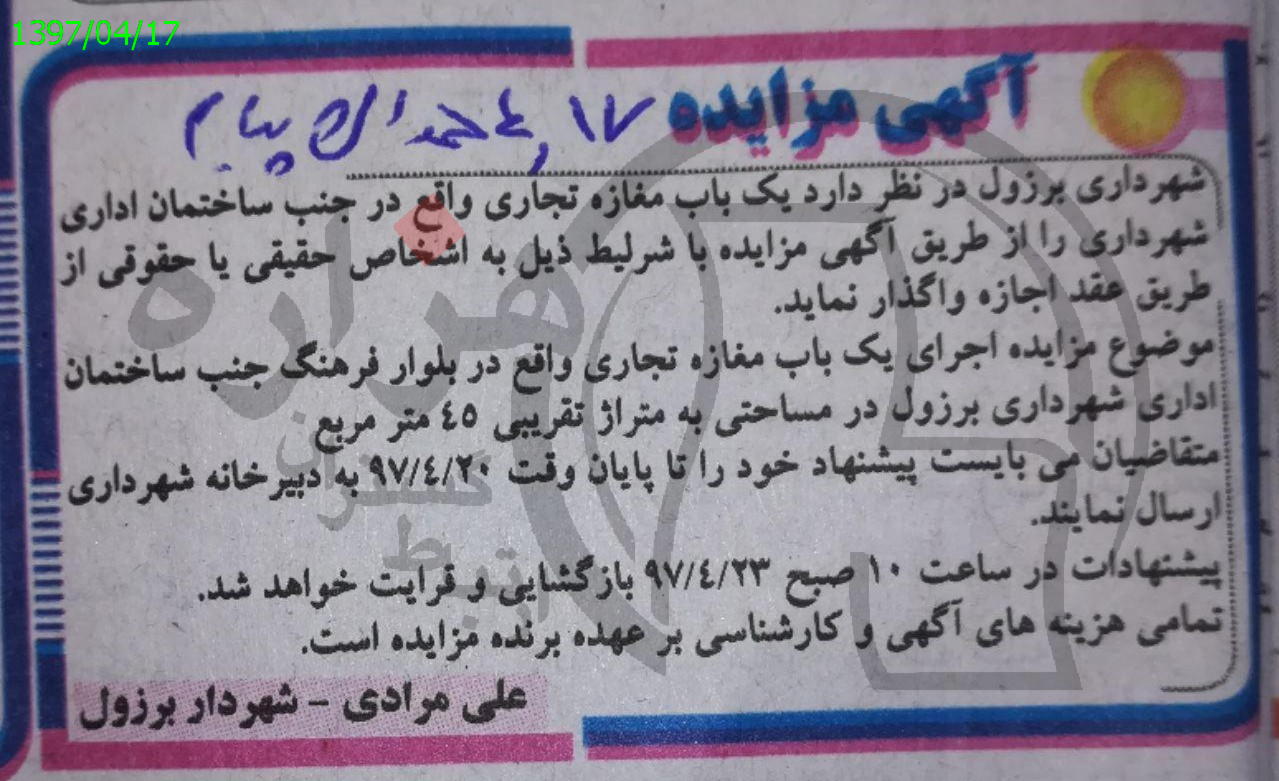 1397/04/17
آگهی مزایده ۱۷
پیام
شهرداری برزول در نظر دارد یک باب مغازه تجاری واقع در جنب ساختمان اداری
شهرداری را از طریق آگهی مزایده با شرلیط ذیل به اشخاص حقیقی یا حقوقی از
طریق عقد اجازه واگذار نماید.
موضوع مزایده اجرای یک باب مغازه تجاری واقع در بلوار فرهنگ جنب ساختمان
اداری شهرداری برزول در مساحتی به متراژ تقریبی ٤٥ متر مربع
متقاضیان می بایست پیشنهاد خود را تا پایان وقت ۹۷/٤/۲۰ به دبیرخانه شهرداری
ارسال نمایند.
پیشنهادات در ساعت ۱۰ صبح ۹۷/٤/۲۳ بازگشایی و قرایت خواهد شد.
تمامی هزینه های آگهی و کارشناسی بر عهده برنده مزایده است.
علی مرادی - شهردار برزول
هزاره